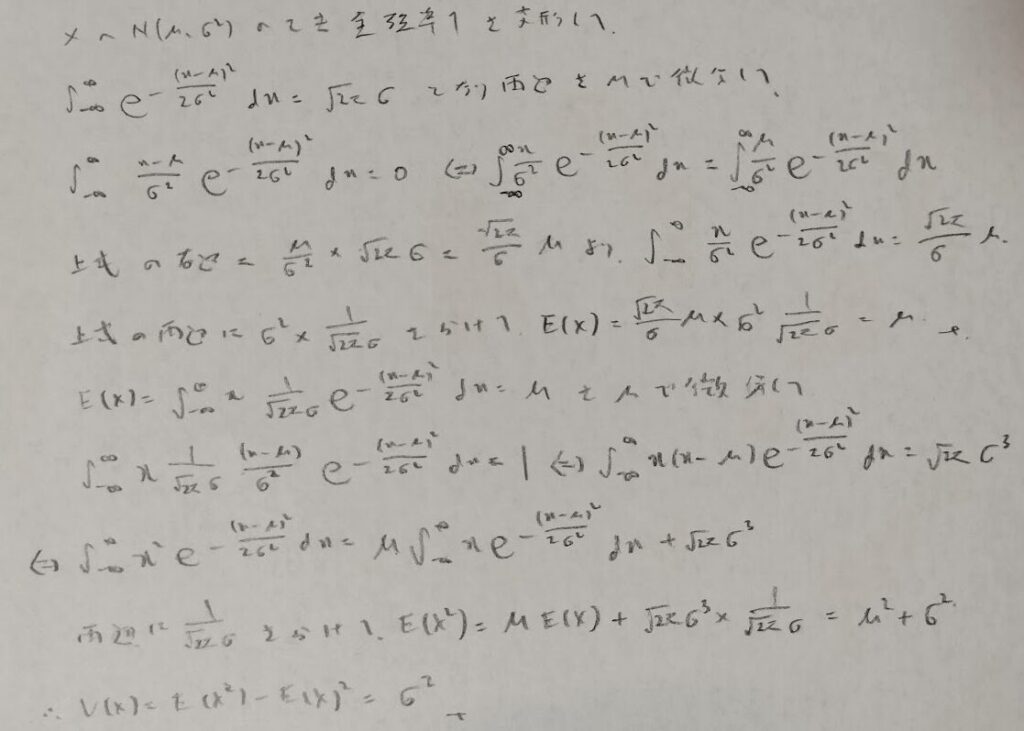 X ~ N(μ, σ²) のとき 全確率 1 を変形して、
∫_{-∞}^{∞} e^{-\frac{(x-μ)²}{2σ²}} dx = √2π σ となり 両辺を μ で微分して、
∫_{-∞}^{∞} \frac{x-μ}{σ²} e^{-\frac{(x-μ)²}{2σ²}} dx = 0 ⇔ ∫_{-∞}^{∞} \frac{x}{σ²} e^{-\frac{(x-μ)²}{2σ²}} dx = ∫_{-∞}^{∞} \frac{μ}{σ²} e^{-\frac{(x-μ)²}{2σ²}} dx
上式の右辺 = \frac{μ}{σ²} × √2π σ = \frac{√2π}{σ} μ より、∫_{-∞}^{∞} \frac{x}{σ²} e^{-\frac{(x-μ)²}{2σ²}} dx = \frac{√2π}{σ} μ.
上式の両辺に σ² × \frac{1}{√2π σ} をかけて、E(X) = \frac{√2π}{σ} μ × σ² \frac{1}{√2π σ} = μ.
E(X) = ∫_{-∞}^{∞} x \frac{1}{√2π σ} e^{-\frac{(x-μ)²}{2σ²}} dx = μ を μ で微分して
∫_{-∞}^{∞} x \frac{1}{√2π σ} \frac{(x-μ)}{σ²} e^{-\frac{(x-μ)²}{2σ²}} dx = 1 ⇔ ∫_{-∞}^{∞} x(x-μ) e^{-\frac{(x-μ)²}{2σ²}} dx = √2π σ³
⇔ ∫_{-∞}^{∞} x² e^{-\frac{(x-μ)²}{2σ²}} dx = μ ∫_{-∞}^{∞} x e^{-\frac{(x-μ)²}{2σ²}} dx + √2π σ³
両辺に \frac{1}{√2π σ} をかけて、E(X²) = μ E(X) + √2π σ³ × \frac{1}{√2π σ} = μ² + σ².
∴ V(X) = E(X²) - E(X)² = σ²